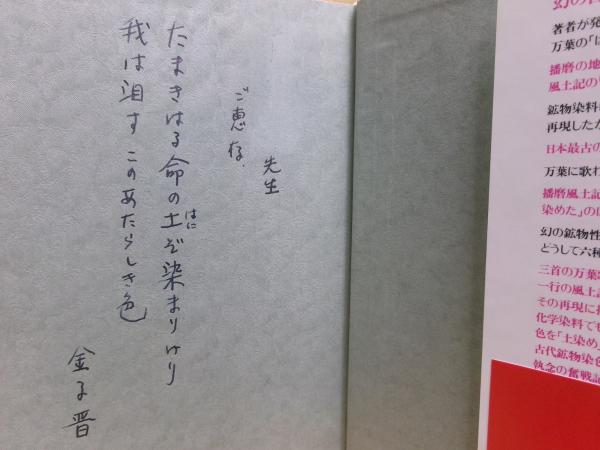 幻の
著者が発
万葉の「は
播磨の地
風土記の
鉱物染料
再現した
日本最古の
万葉に歌わ
播磨風土記
染めた」の
幻の鉱物性
どうして六種
三首の万葉
一行の風土記
その再現に
化学染料で
色を「土染め」
古代鉱物染色
執念の奮戦記
先生
ご恵存.
たまきはる命の土ぞ染まりけり
はに
我は泪すこのあたらしき色
金子晋